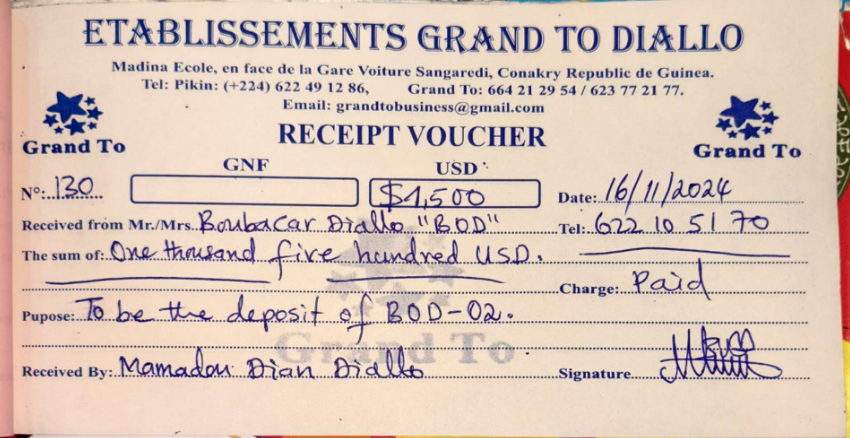 ETABLISSEMENTS GRAND TO DIALLO
Madina Ecole, en face de la Gare Voiture Sangaredi, Conakry Republic de Guinea.
Tel: Pikin: (+224) 622 49 12 86, Grand To: 664 21 29 54 / 623 77 21 77.
Email: grandtobusiness@gmail.com
Grand To
RECEIPT VOUCHER
Grand To
GNF USD
N°: 130 $1,500 Date: 16/11/2024
Received from Mr./Mrs. Boubacar Diallo "BOD" Tel: 622 10 51 70
The sum of: One thousand five hundred USD.
Charge: Paid
Pupose: To be the deposit of BOD-02.
Grand To
Received By: Mamadou Dian Diallo Signature